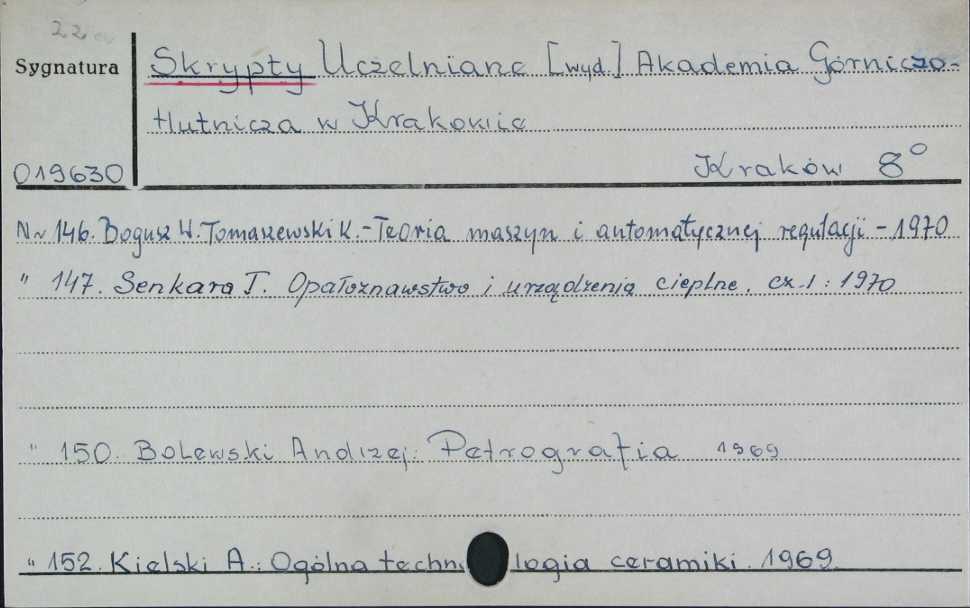 22
Sygnatura
Skrypty Uczelniane [wyd.] Akademia Górniczo-
Hutnicza w Krakowie
Kraków 8°
019630
Nr 146. Bogusz W. Tomaszewski K. - Teoria maszyn i automatycznej regulacji - 1970
" 147. Senkara T. Opałoznawstwo i urządzenia cieplne. cz. 1: 1970
" 150. Bolewski Andrzej: Petrografia 1969
" 152. Kielski A.: Ogólna technologia ceramiki. 1969.